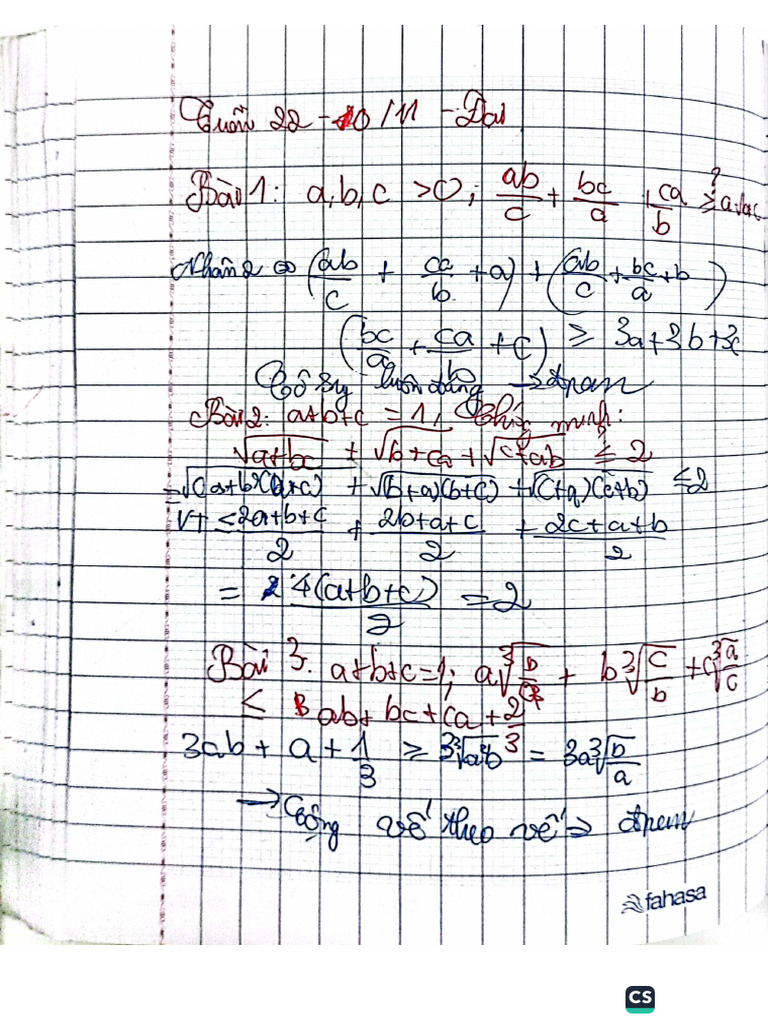 Tuần 22 - 10/11 - Đại
Bài 1: a, b, c > 0; ab/c + bc/a + ca/b ≥? a+b+c
Nhân 2 ⇔ (ab/c + ca/b + a) + (ab/c + bc/a + b)
(bc/a + ca/b + c) ≥ 3a + 3b + 3c
Cô sy luôn đúng → đpcm
Bài 2: a+b+c = 1, Chứng minh:
√(a+bc) + √(b+ca) + √(c+ab) ≤ 2
= √((a+b)(a+c)) + √((b+a)(b+c)) + √((c+a)(c+b)) ≤ 2
VT ≤ (2a+b+c)/2 + (2b+a+c)/2 + (2c+a+b)/2
= 4(a+b+c)/2 = 2
Bài 3: a+b+c=1; a∛(b/a) + b∛(c/b) + c∛(a/c)
≤ ab + bc + ca + 2/3
3ab + a + 1/3 ≥ 3∛(a²b) = 3a∛(b/a)
→ Cộng vế theo vế ⇒ đpcm
fahasa
CS